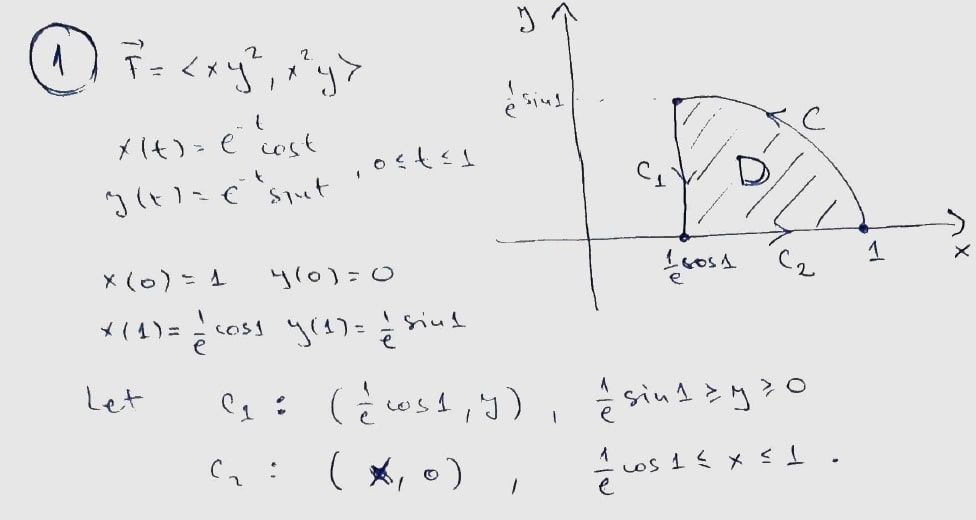 ① F⃗ = <xy², x²y>
x(t) = e⁻ᵗ cost
y(t) = e⁻ᵗ sint , 0≤t≤1
x(0) = 1 y(0) = 0
x(1) = 1/e cos1 y(1) = 1/e sin1
Let C₁ : (1/e cos1, y) , 1/e sin1 ≥ y ≥ 0
C₂ : (x, 0) , 1/e cos1 ≤ x ≤ 1 .
y
1/e sin1
C
C₁
D
1/e cos1
C₂
1
x